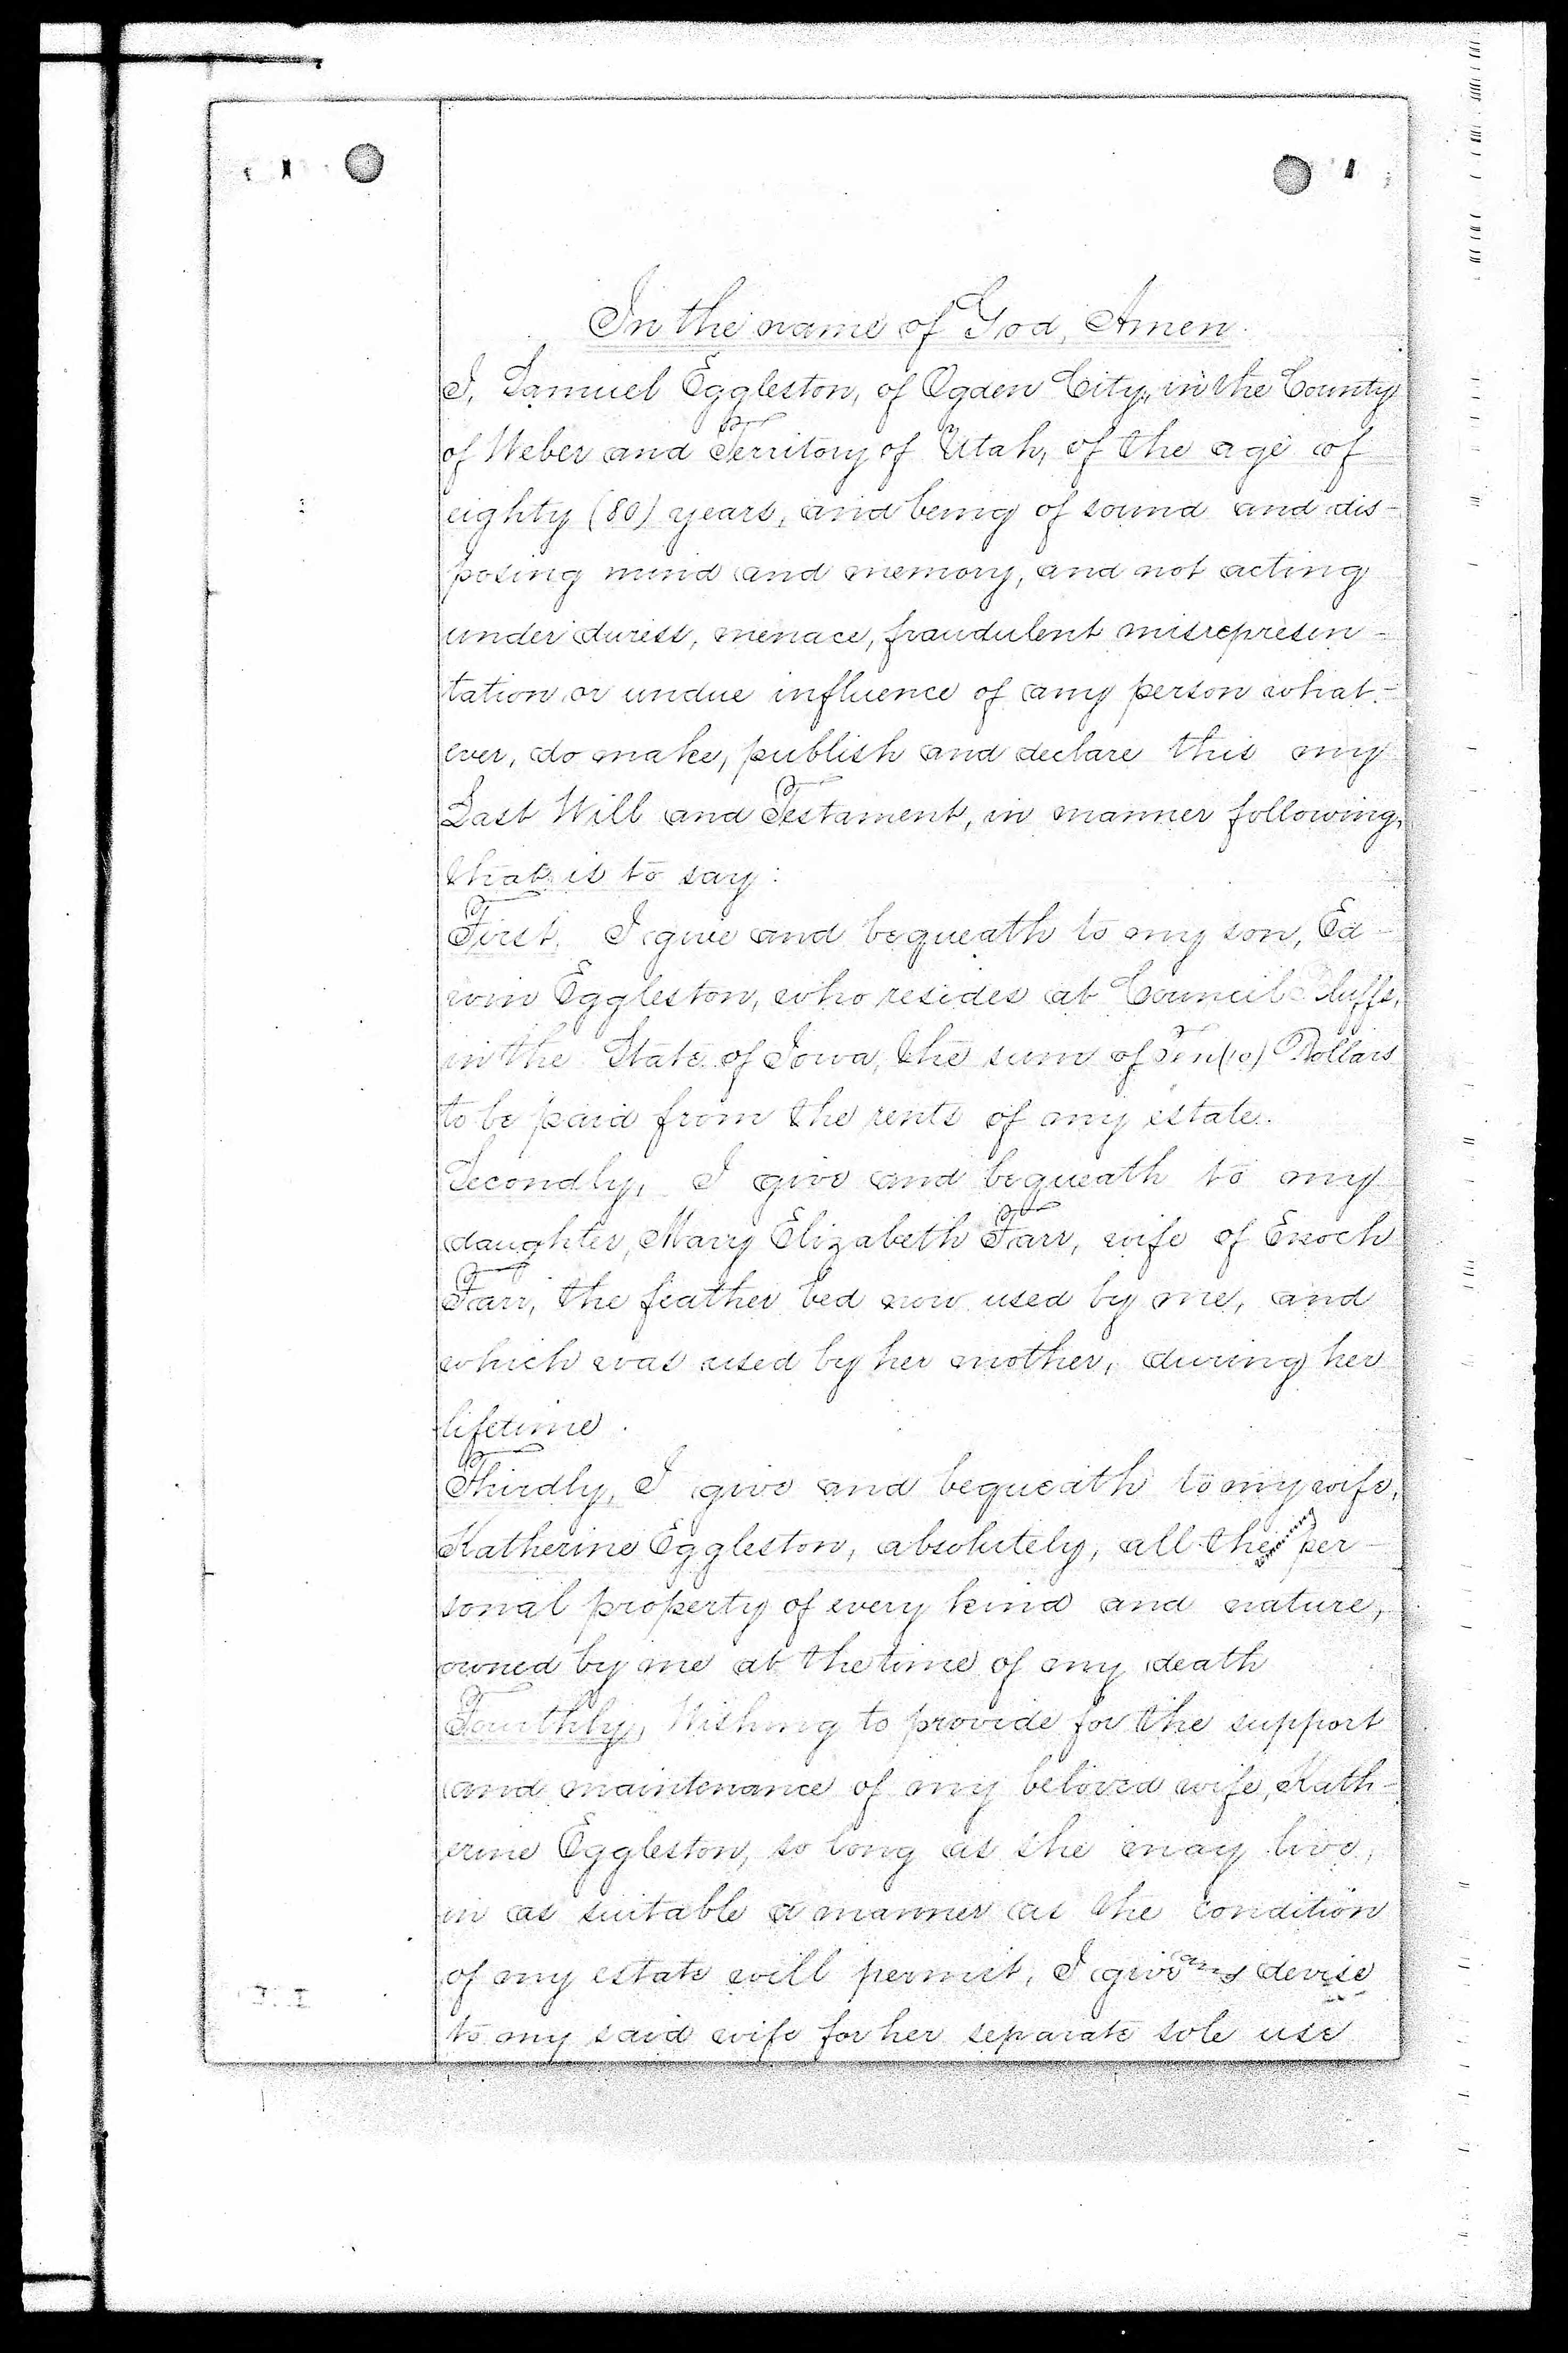 In the name of God, Amen.
I, Samuel Eggleston, of Ogden City, in the County
of Weber and Territory of Utah, of the age of
eighty (80) years, and being of sound and dis-
posing mind and memory, and not acting
under duress, menace, fraudulent misrepresen-
tation or undue influence of any person what-
ever, do make, publish and declare this my
Last Will and Testament, in manner following,
that is to say:
First, I give and bequeath to my son, Ed-
win Eggleston, who resides at Council Bluffs,
in the State of Iowa, the sum of Ten (10) Dollars
to be paid from the rents of my estate.
Secondly, I give and bequeath to my
daughter, Mary Elizabeth Farr, wife of Enoch
Farr, the feather bed now used by me, and
which was used by her mother, during her
lifetime.
Thirdly, I give and bequeath to my wife,
Katherine Eggleston, absolutely, all the remaining per-
sonal property of every kind and nature,
owned by me at the time of my death
Fourthly, Wishing to provide for the support
and maintenance of my beloved wife, Kath-
erine Eggleston, so long as she may live,
in as suitable a manner as the condition
of my estate will permit, I give and devise
to my said wife for her separate sole use